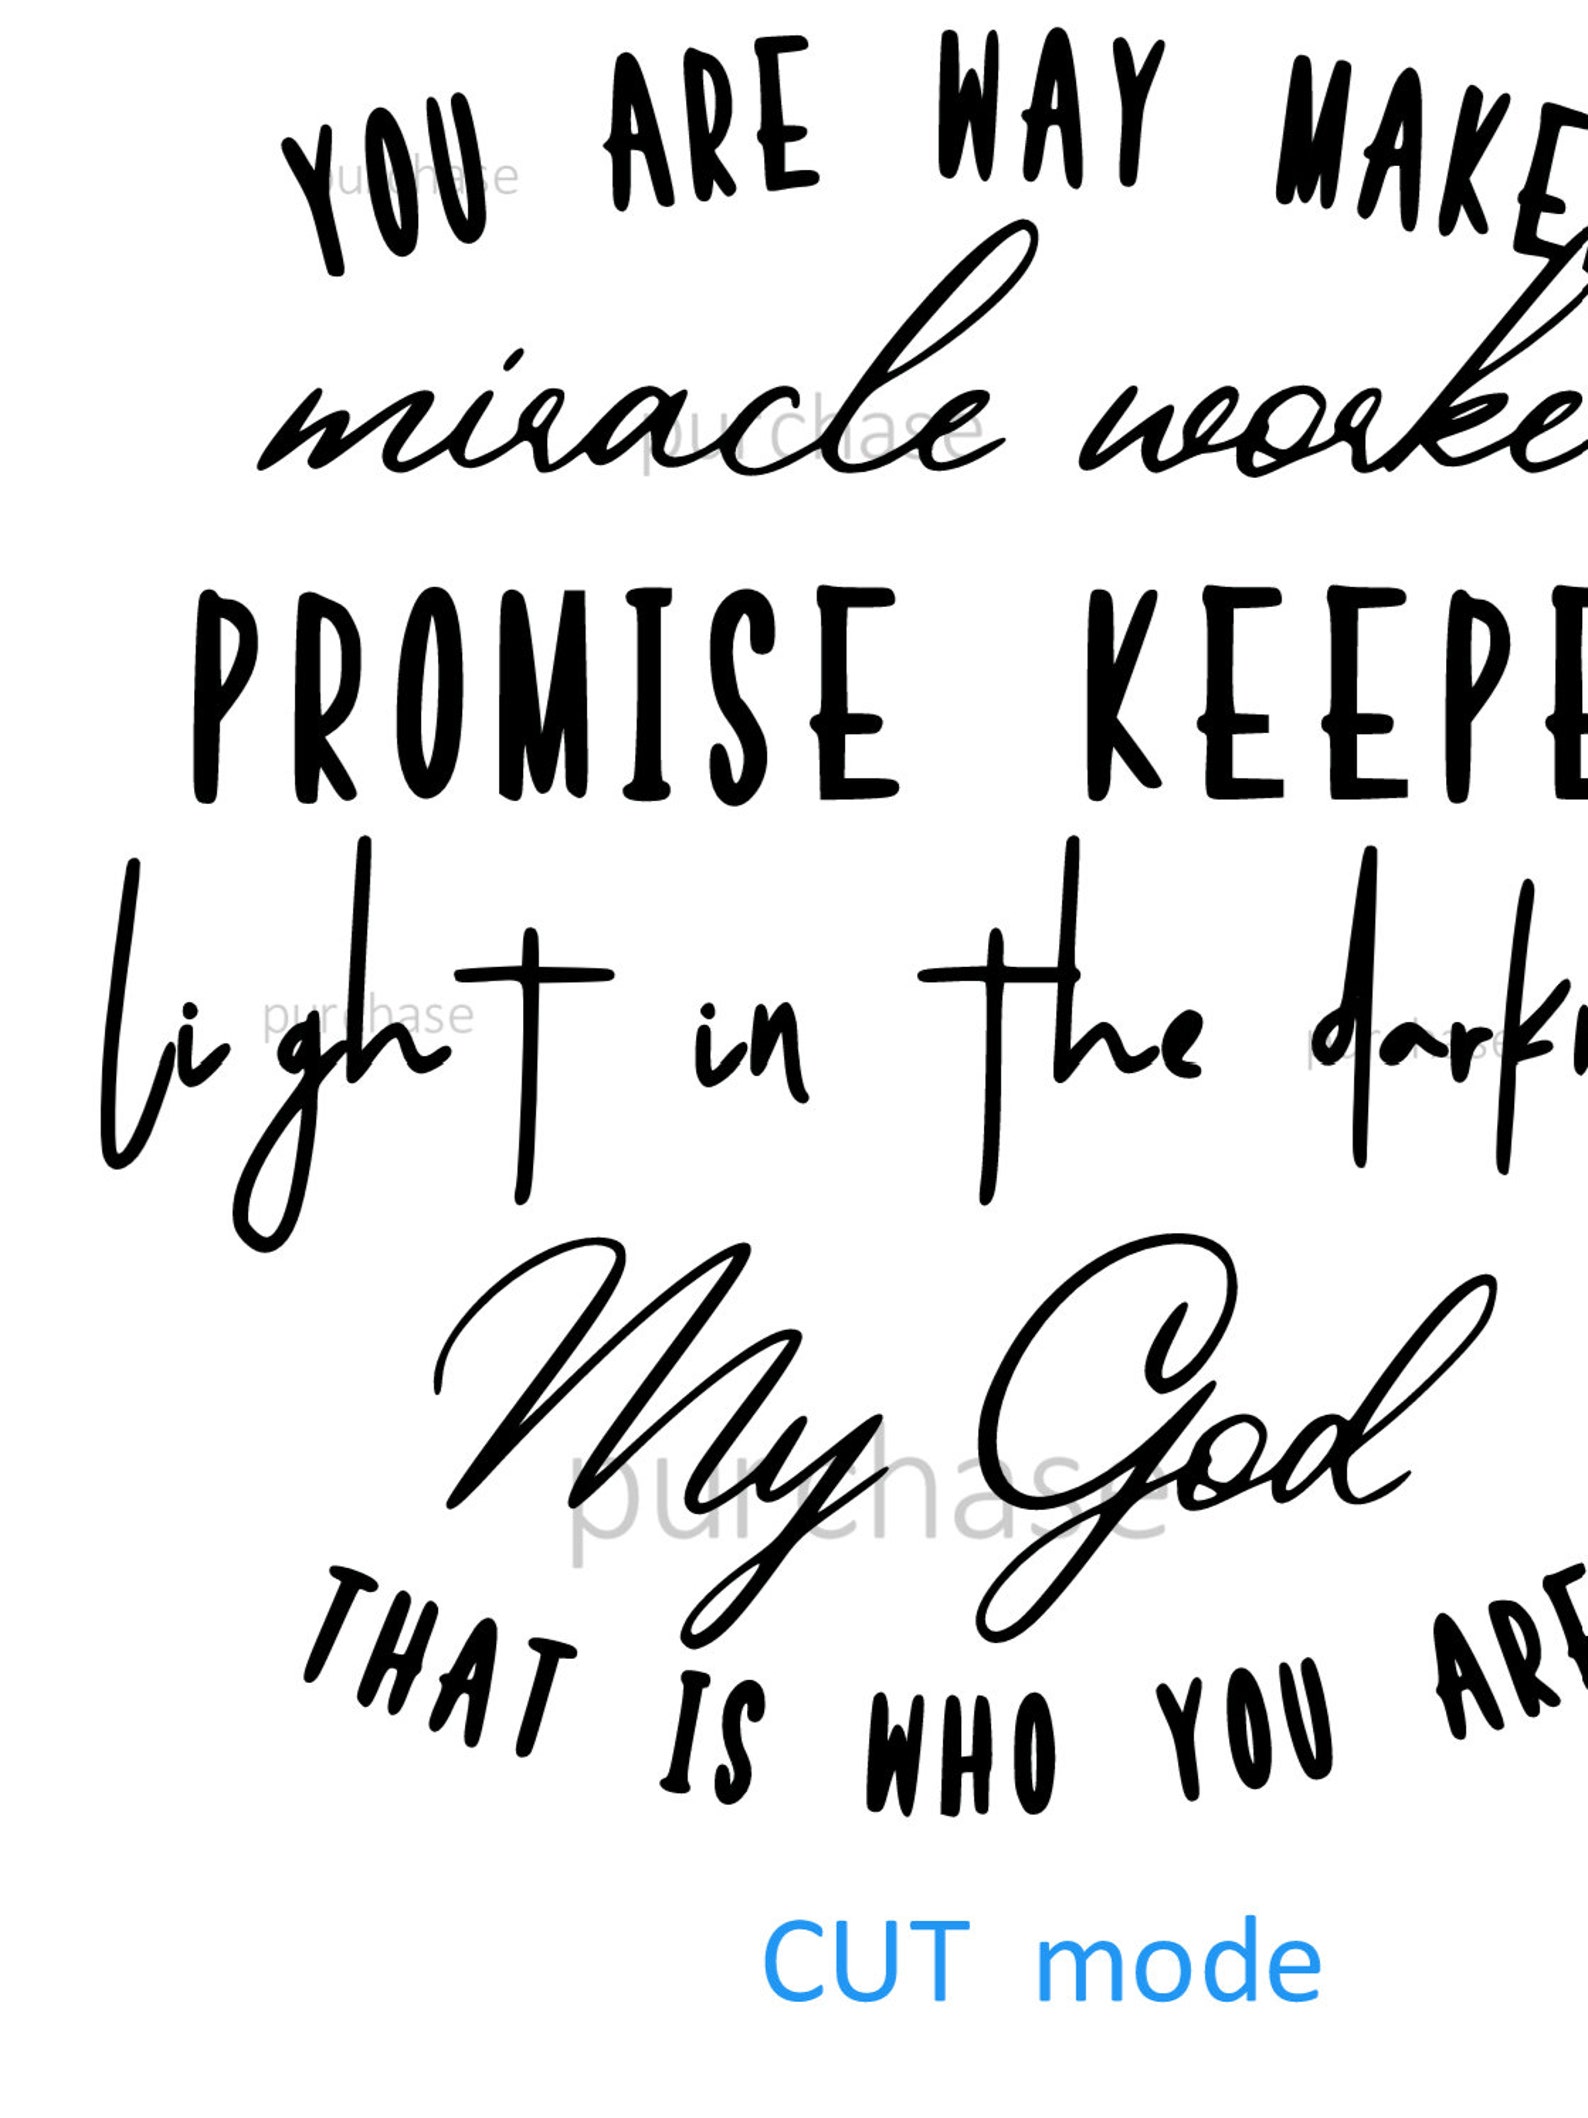 YOU ARE WAY MAKE
purchase
miracle worke
purchase
PROMISE KEEPE
light in the dark
purchase purchase
My God
purchase
THAT IS WHO YOU ARE
CUT mode